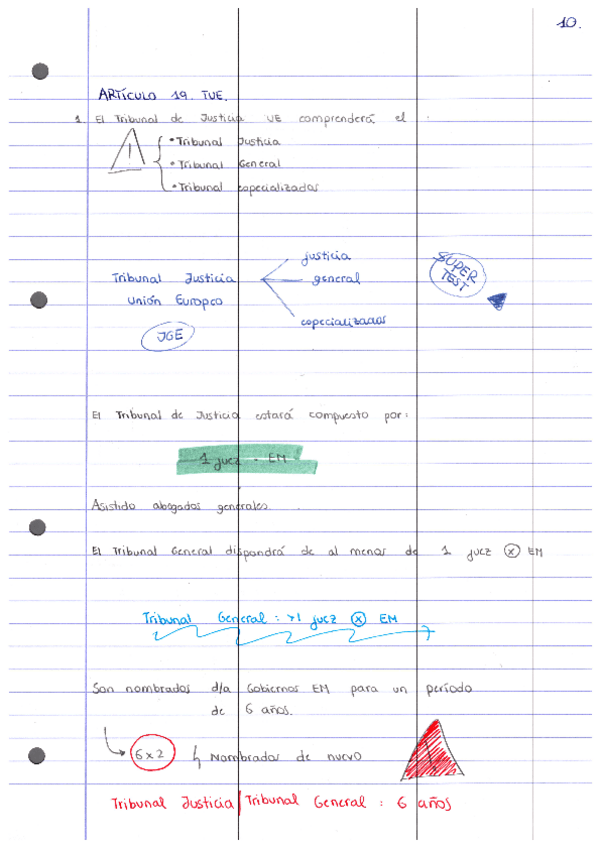 10.
ARTÍCULO 19. TUE.
1. El Tribunal de Justicia UE comprenderá el
! • Tribunal Justicia
• Tribunal General
• Tribunal especializados
justicia
Tribunal Justicia general
Unión Europea
especializados
JGE
SUPER
TEST
El Tribunal de Justicia estará compuesto por:
1 juez - EM
Asistido abogados generales.
El Tribunal General dispondrá de al menos de 1 juez x EM
Tribunal General: >1 juez x EM
Son nombrados d/a Gobiernos EM para un período
de 6 años.
6x2 Nombrados de nuevo
!
Tribunal Justicia / Tribunal General : 6 años